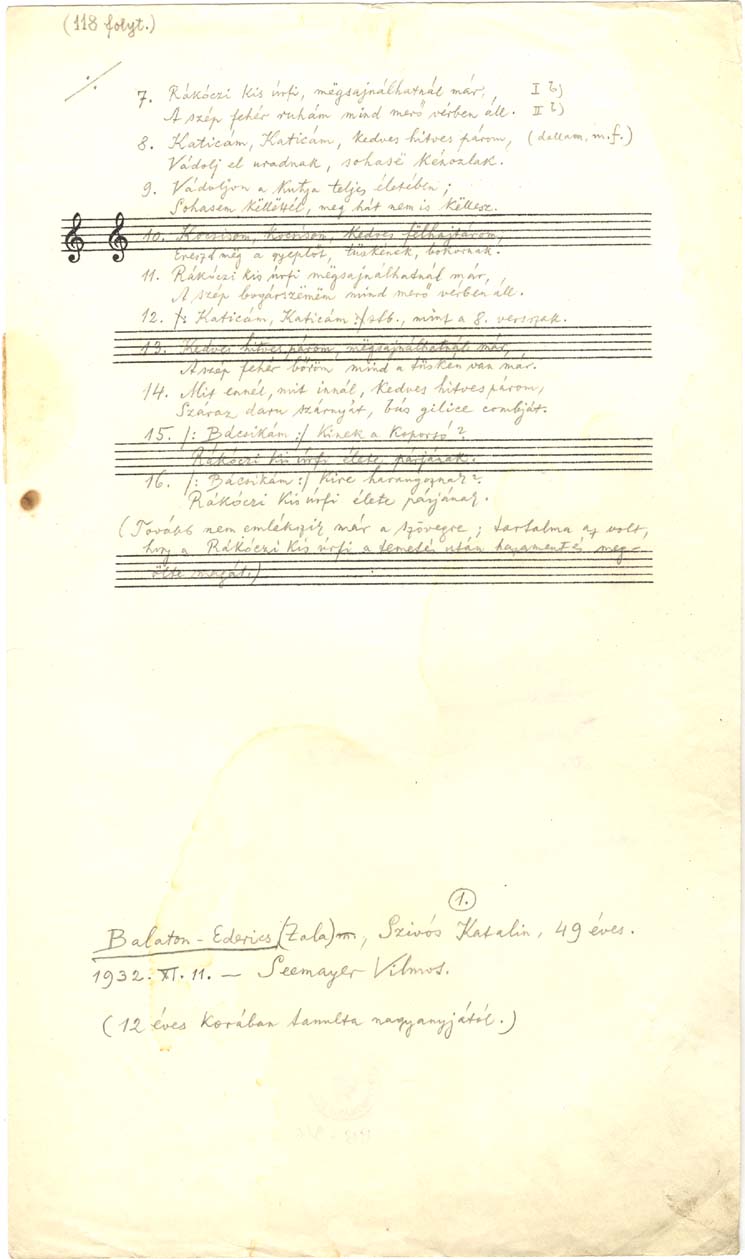 (118 folyt.)
./.
7. Rákóczi kis úrfi, mëgsajnálhatnál már, I b)
A szép fehér ruhám mind merő vérben áll. II b)
8. Katicám, Katicám, kedves hitves párom, (dallam, m.f.)
Vádolj el uradnak, sohasë kénozlak.
9. Vádoljon a kutya teljes életében;
Sohasem këllëttél, meg hát nem is këllesz.
10. Kocsisom, kocsisom, kedves fëlhajtárom,
Ereszd mëg a gyeplőt, tüskének, bokornak.
11. Rákóczi kis úrfi mëgsajnálhatnál már,
A szép bogárszëmëm mind merő vérben áll.
12. /: Katicám, Katicám :/ stb., mint a 8. versszak.
13. Kedves hitves párom, mëgsajnálhatnál már,
A szép fehér bőröm mind a tüskén van már.
14. Mit ennél, mit innál, kedves hitves párom,
Száraz daru szárnyát, bús gilice combját.
15. /: Bácsikám :/ Kinek a koporsó?
Rákóczi kis úrfi élete párjának.
16. /: Bácsikám :/ Kire harangoznak?
Rákóczi kis úrfi élete párjának.
(Tovább nem emlékszik már a szövegre; tartalma az volt,
hogy a Rákóczi kis úrfi a temetés után hazament és meg-
ölte magát.)
1.
Balaton-Ederics (Zala) m., Szivós Katalin, 49 éves.
1932. XI. 11. — Seemayer Vilmos.
(12 éves korában tanulta nagyanyjától.)